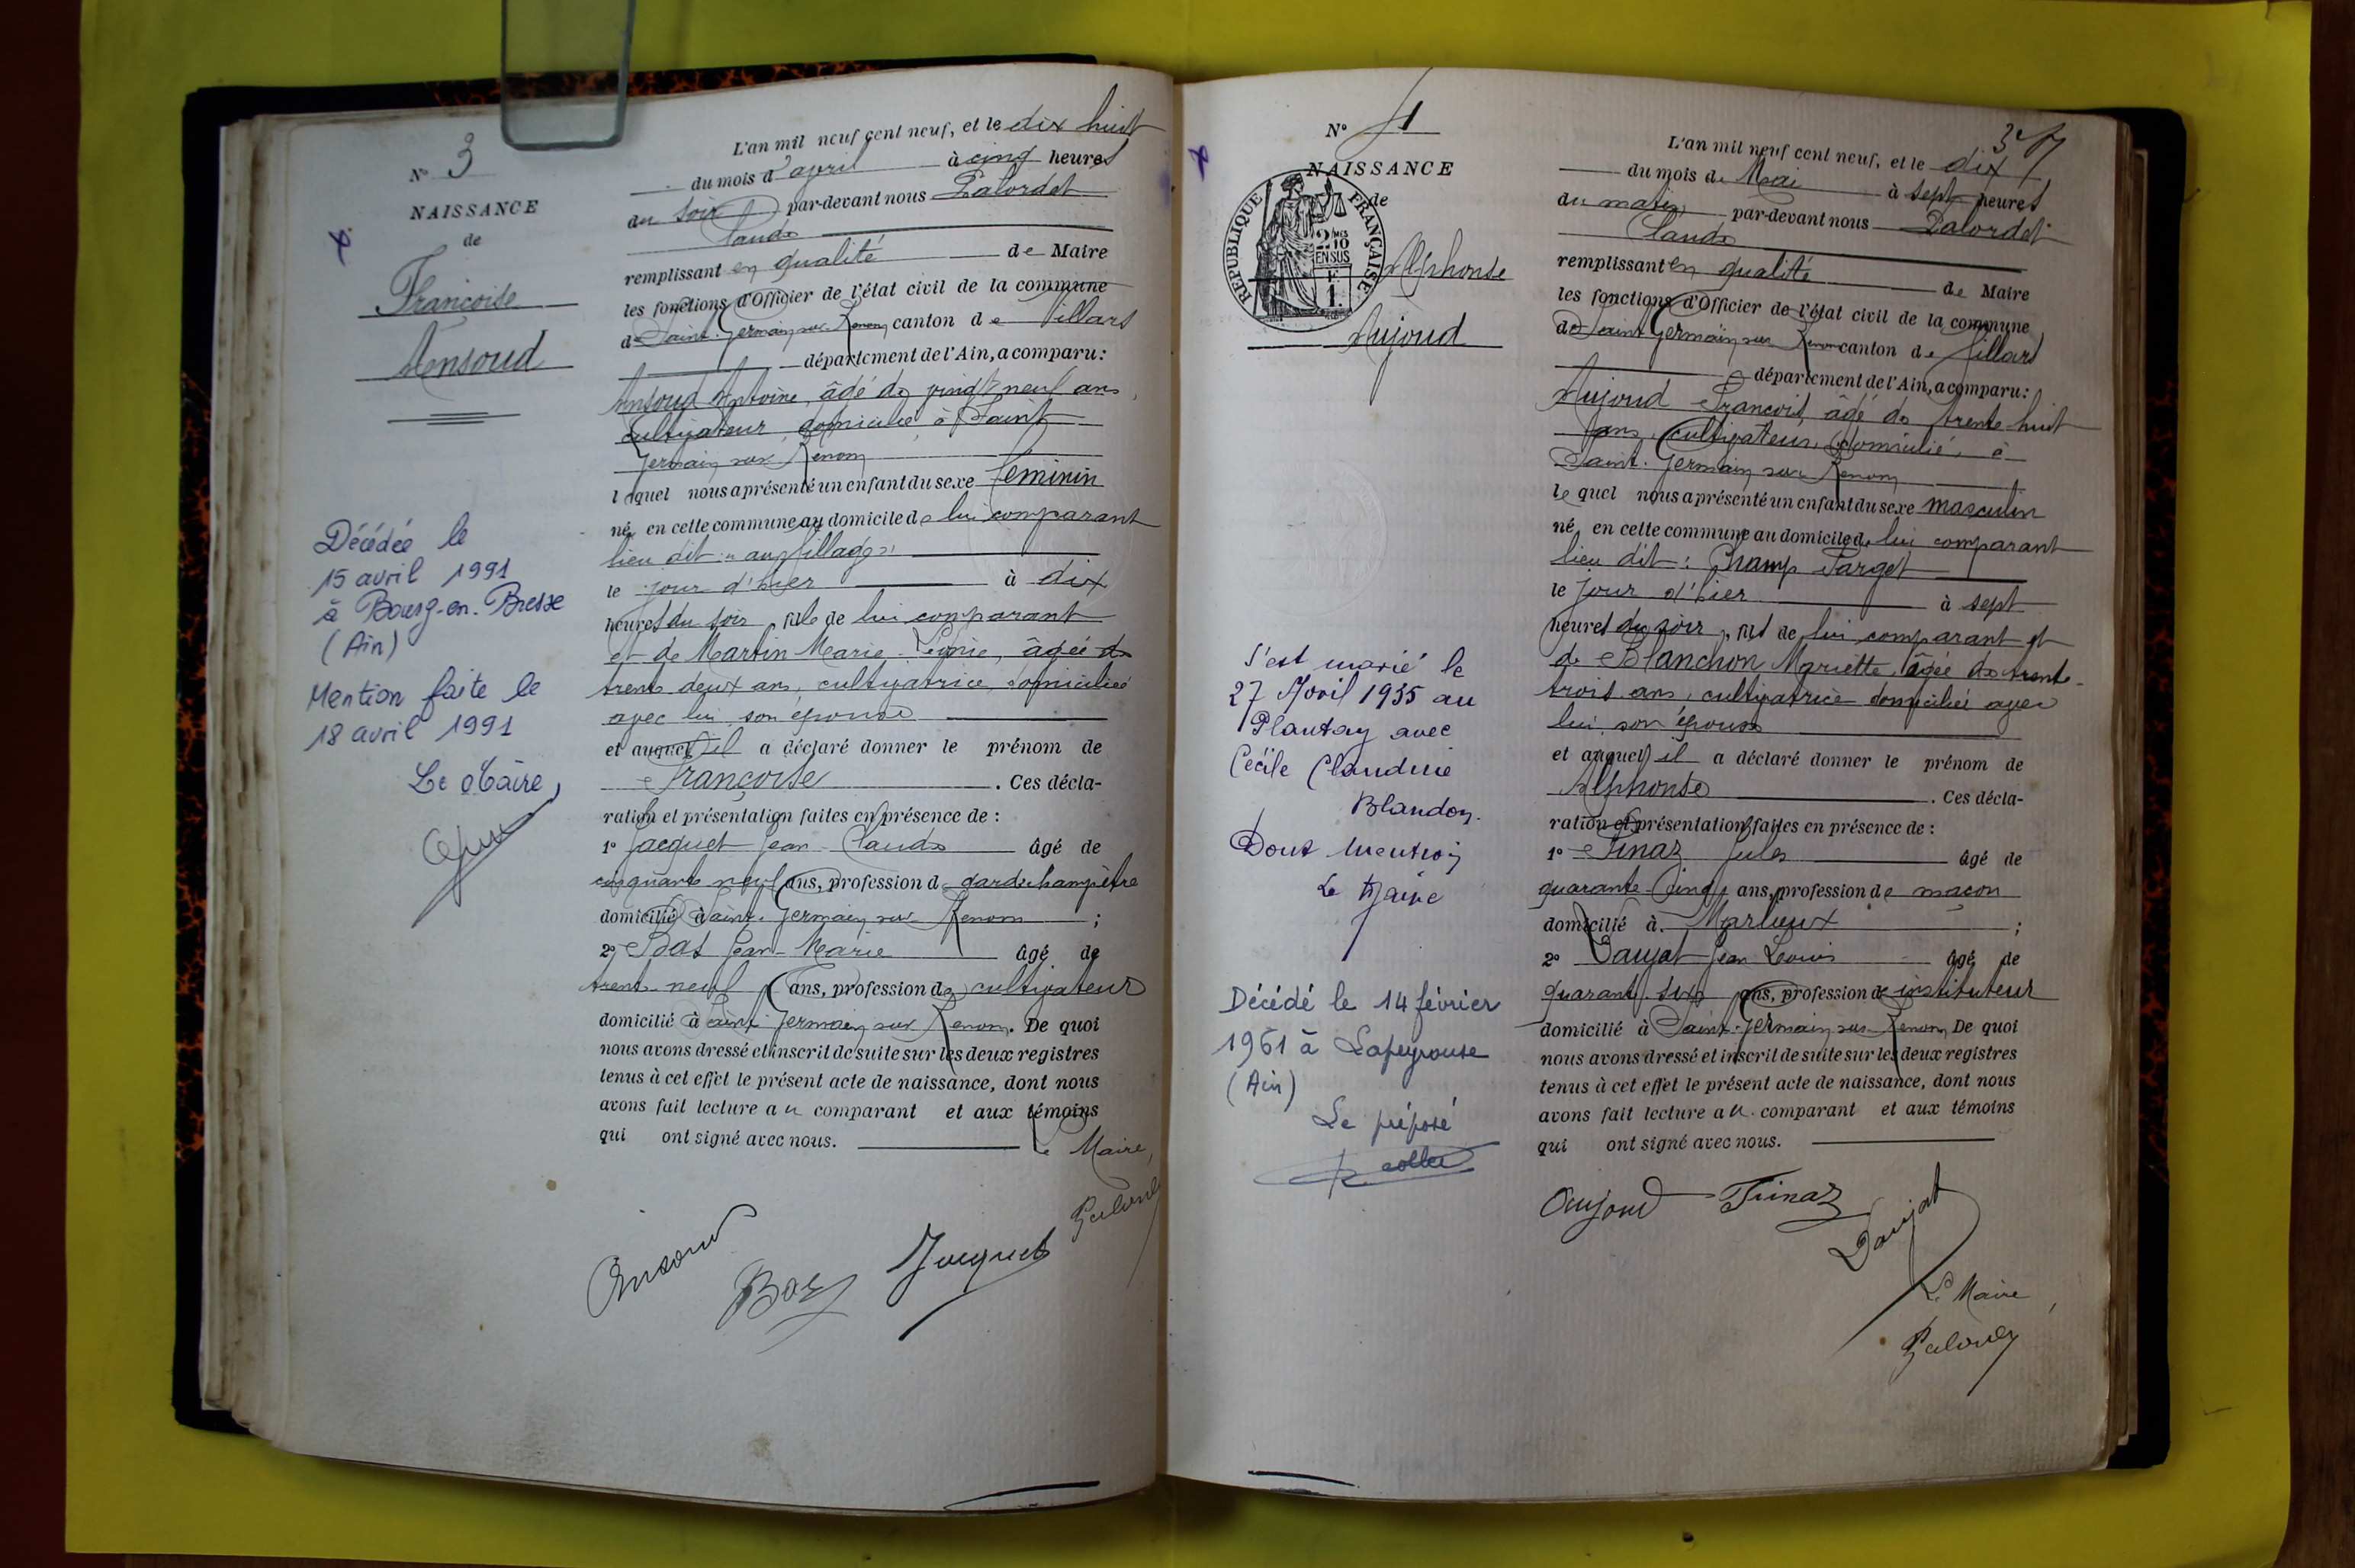 N° 3
NAISSANCE
de
Françoise
Ansoud
Décédée le
15 avril 1991
à Bourg-en-Bresse
(Ain)
Mention faite le
18 avril 1991
Le Maire,
L'an mil neuf cent neuf, et le dix huit
du mois d'avril à cinq heures
du soir par-devant nous Palordet
Claude
remplissant en qualité de Maire
les fonctions d'Officier de l'état civil de la commune
de Saint-Germain sur Renom canton de Villars
département de l'Ain, a comparu :
Ansoud Antoine, âgé de vingt neuf ans,
cultivateur, domicilié à Saint
Germain sur Renom
lequel nous a présenté un enfant du sexe féminin
née en cette commune au domicile de lui comparant
lieu dit : "au Village"
le jour d'hier à dix
heures du soir, fille de lui comparant
et de Martin Marie Léonie, âgée de
trente deux ans, cultivatrice, domiciliée
avec lui, son épouse
et auquel il a déclaré donner le prénom de
Françoise. Ces décla-
ration et présentation faites en présence de :
1° Jacquet Jean-Claude âgé de
cinquante neuf ans, profession de garde champêtre
domicilié à Saint-Germain sur Renom ;
2° Bas Jean-Marie âgé de
trente-neuf ans, profession de cultivateur
domicilié à Saint-Germain sur Renom. De quoi
nous avons dressé et inscrit de suite sur les deux registres
tenus à cet effet le présent acte de naissance, dont nous
avons fait lecture au comparant et aux témoins
qui ont signé avec nous.
Le Maire,
Ansoud Bas Jacquet
N° 4
NAISSANCE
de
RÉPUBLIQUE FRANÇAISE
2/10 EN SUS
Alphonse
Aujoud
S'est marié le
27 Avril 1935 au
Plantay avec
Cécile Claudine
Blandon.
Dont mention
Le Maire
Décédé le 14 février
1961 à Lapeyrouse
(Ain)
Le préposé
L'an mil neuf cent neuf, et le dix
du mois de Mai à sept heures
du matin par-devant nous Palordet
Claude
remplissant en qualité de Maire
les fonctions d'Officier de l'état civil de la commune
de Saint-Germain sur Renom canton de Villars
département de l'Ain, a comparu :
Aujoud François âgé de trente-huit
ans, cultivateur, domicilié à
Saint-Germain sur Renom
lequel nous a présenté un enfant du sexe masculin
né en cette commune au domicile de lui comparant
lieu dit : Champ Farget
le jour d'hier à sept
heures du soir, fils de lui comparant et
de Blanchon Mariette, âgée de trente-
trois ans, cultivatrice domiciliée avec
lui, son épouse
et auquel il a déclaré donner le prénom de
Alphonse. Ces décla-
ration et présentation faites en présence de :
1° Tinaz Jules âgé de
quarante-cinq ans, profession de maçon
domicilié à Marlieux ;
2° Daujat Jean Louis âgé de
quarante-six ans, profession de instituteur
domicilié à Saint-Germain sur Renom De quoi
nous avons dressé et inscrit de suite sur les deux registres
tenus à cet effet le présent acte de naissance, dont nous
avons fait lecture au comparant et aux témoins
qui ont signé avec nous.
Aujoud Tinaz
Daujat
Le Maire,